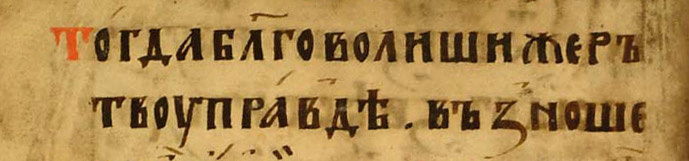 Тогдаблг҃оволишижер҄ъ
твоуправдѣ. въꙁноше